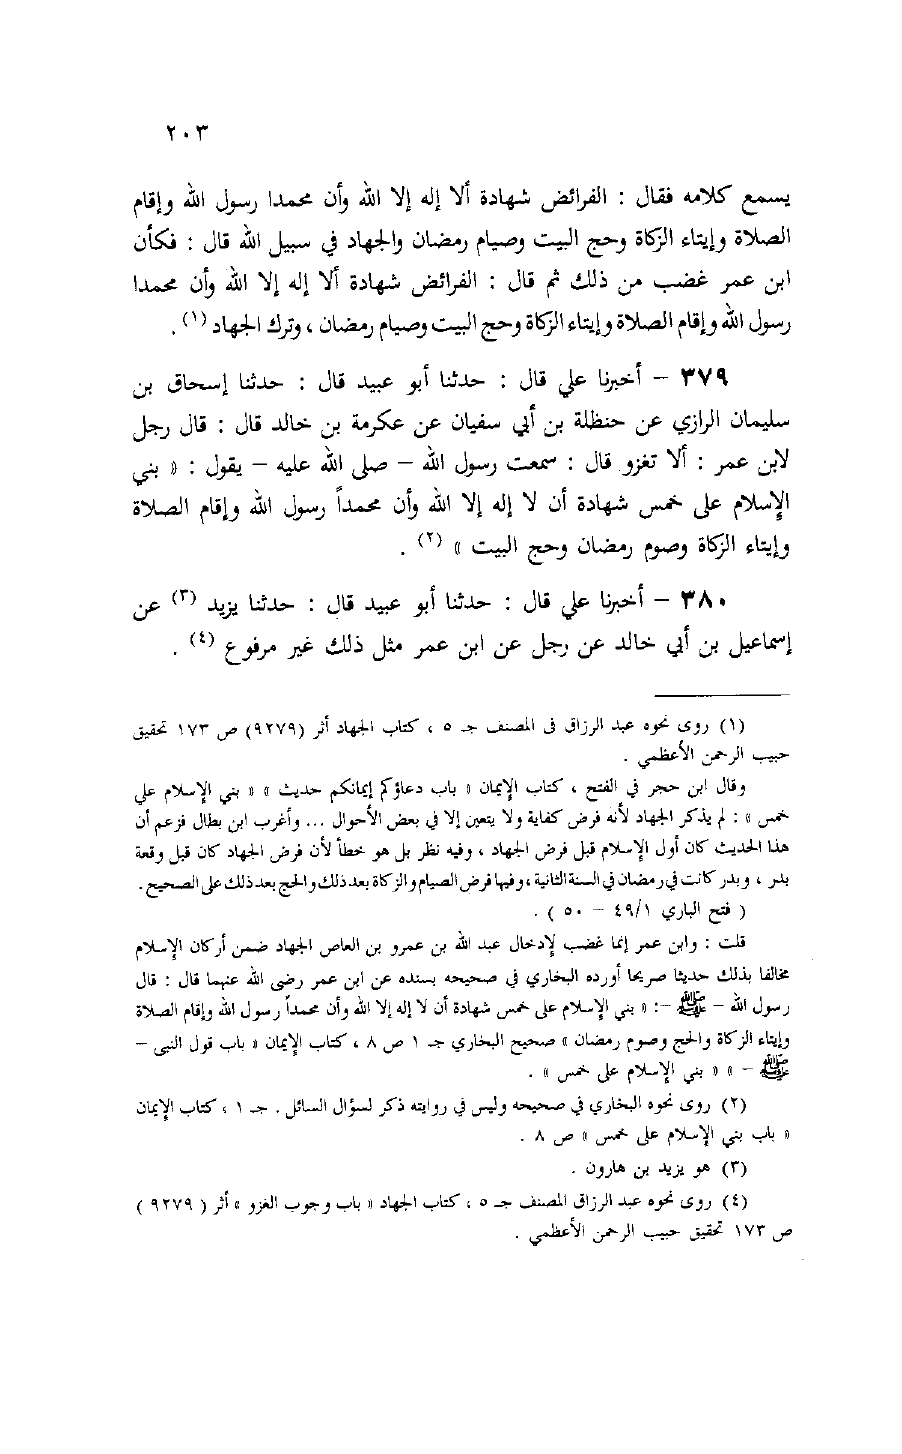 ٢٠٣
يسمع كلامه فقال : الفرائض شهادة ألا إله إلا الله وأن محمدا رسول الله وإقام
الصلاة وإيتاء الزكاة وحج البيت وصيام رمضان والجهاد في سبيل الله قال : فكأن
ابن عمر غضب من ذلك ثم قال : الفرائض شهادة ألا إله إلا الله وأن محمدا
رسول الله وإقام الصلاة وإيتاء الزكاة وحج البيت وصيام رمضان ، وترك الجهاد (١) .
٣٧٩ – أخبرنا علي قال : حدثنا أبو عبيد قال : حدثنا إسحاق بن
سليمان الرازي عن حنظلة بن أبي سفيان عن عكرمة بن خالد قال : قال رجل
لابن عمر : ألا تغزو قال : سمعت رسول الله – صلى الله عليه – يقول : « بني
الإسلام على خمس شهادة أن لا إله إلا الله وأن محمداً رسول الله وإقام الصلاة
وإيتاء الزكاة وصوم رمضان وحج البيت » (٢) .
٣٨٠ – أخبرنا علي قال : حدثنا أبو عبيد قال : حدثنا يزيد (٣) عن
إسماعيل بن أبي خالد عن رجل عن ابن عمر مثل ذلك غير مرفوع (٤) .
(١) روى نحوه عبد الرزاق فى المصنف جـ ٥ ، كتاب الجهاد أثر (٩٢٧٩) ص ١٧٣ تحقيق
حبيب الرحمن الأعظمي .
وقال ابن حجر في الفتح ، كتاب الإيمان « باب دعاؤكم إيمانكم حديث » « بني الإسلام على
خمس » : لم يذكر الجهاد لأنه فرض كفاية ولا يتعين إلا في بعض الأحوال ... وأغرب ابن بطال فزعم أن
هذا الحديث كان أول الإسلام قبل فرض الجهاد ، وفيه نظر بل هو خطأ لأن فرض الجهاد كان قبل وقعة
بدر ، وبدر كانت في رمضان في السنة الثانية ، وفيها فرض الصيام والزكاة بعد ذلك والحج بعد ذلك على الصحيح .
( فتح الباري ٤٩/١ – ٥٠ ) .
قلت : وابن عمر إنما غضب لإدخال عبد الله بن عمرو بن العاص الجهاد ضمن أركان الإسلام
مخالفا بذلك حديثا صريحا أورده البخاري في صحيحه بسنده عن ابن عمر رضى الله عنهما قال : قال
رسول الله – ﷺ –: « بني الإسلام على خمس شهادة أن لا إله إلا الله وأن محمداً رسول الله وإقام الصلاة
وإيتاء الزكاة والحج وصوم رمضان » صحيح البخاري جـ ١ ص ٨ ، كتاب الإيمان « باب قول النبى –
ﷺ – » « بني الإسلام على خمس » .
(٢) روى نحوه البخاري في صحيحه وليس في روايته ذكر لسؤال السائل . جـ ١ ، كتاب الإيمان
« باب بني الإسلام على خمس » ص ٨ .
(٣) هو يزيد بن هارون .
(٤) روى نحوه عبد الرزاق المصنف جـ ٥ ، كتاب الجهاد « باب وجوب الغزو » أثر ( ٩٢٧٩ )
ص ١٧٣ تحقيق حبيب الرحمن الأعظمي .